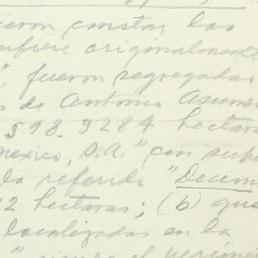 ieron constar las
sufiere originalmente
", fueron segregadas
s de Antonio Asunso
598.9284 hectara
mexico, S.A." con supe
la referida "Decim
2 hectareas; (b) que
localizadas en la